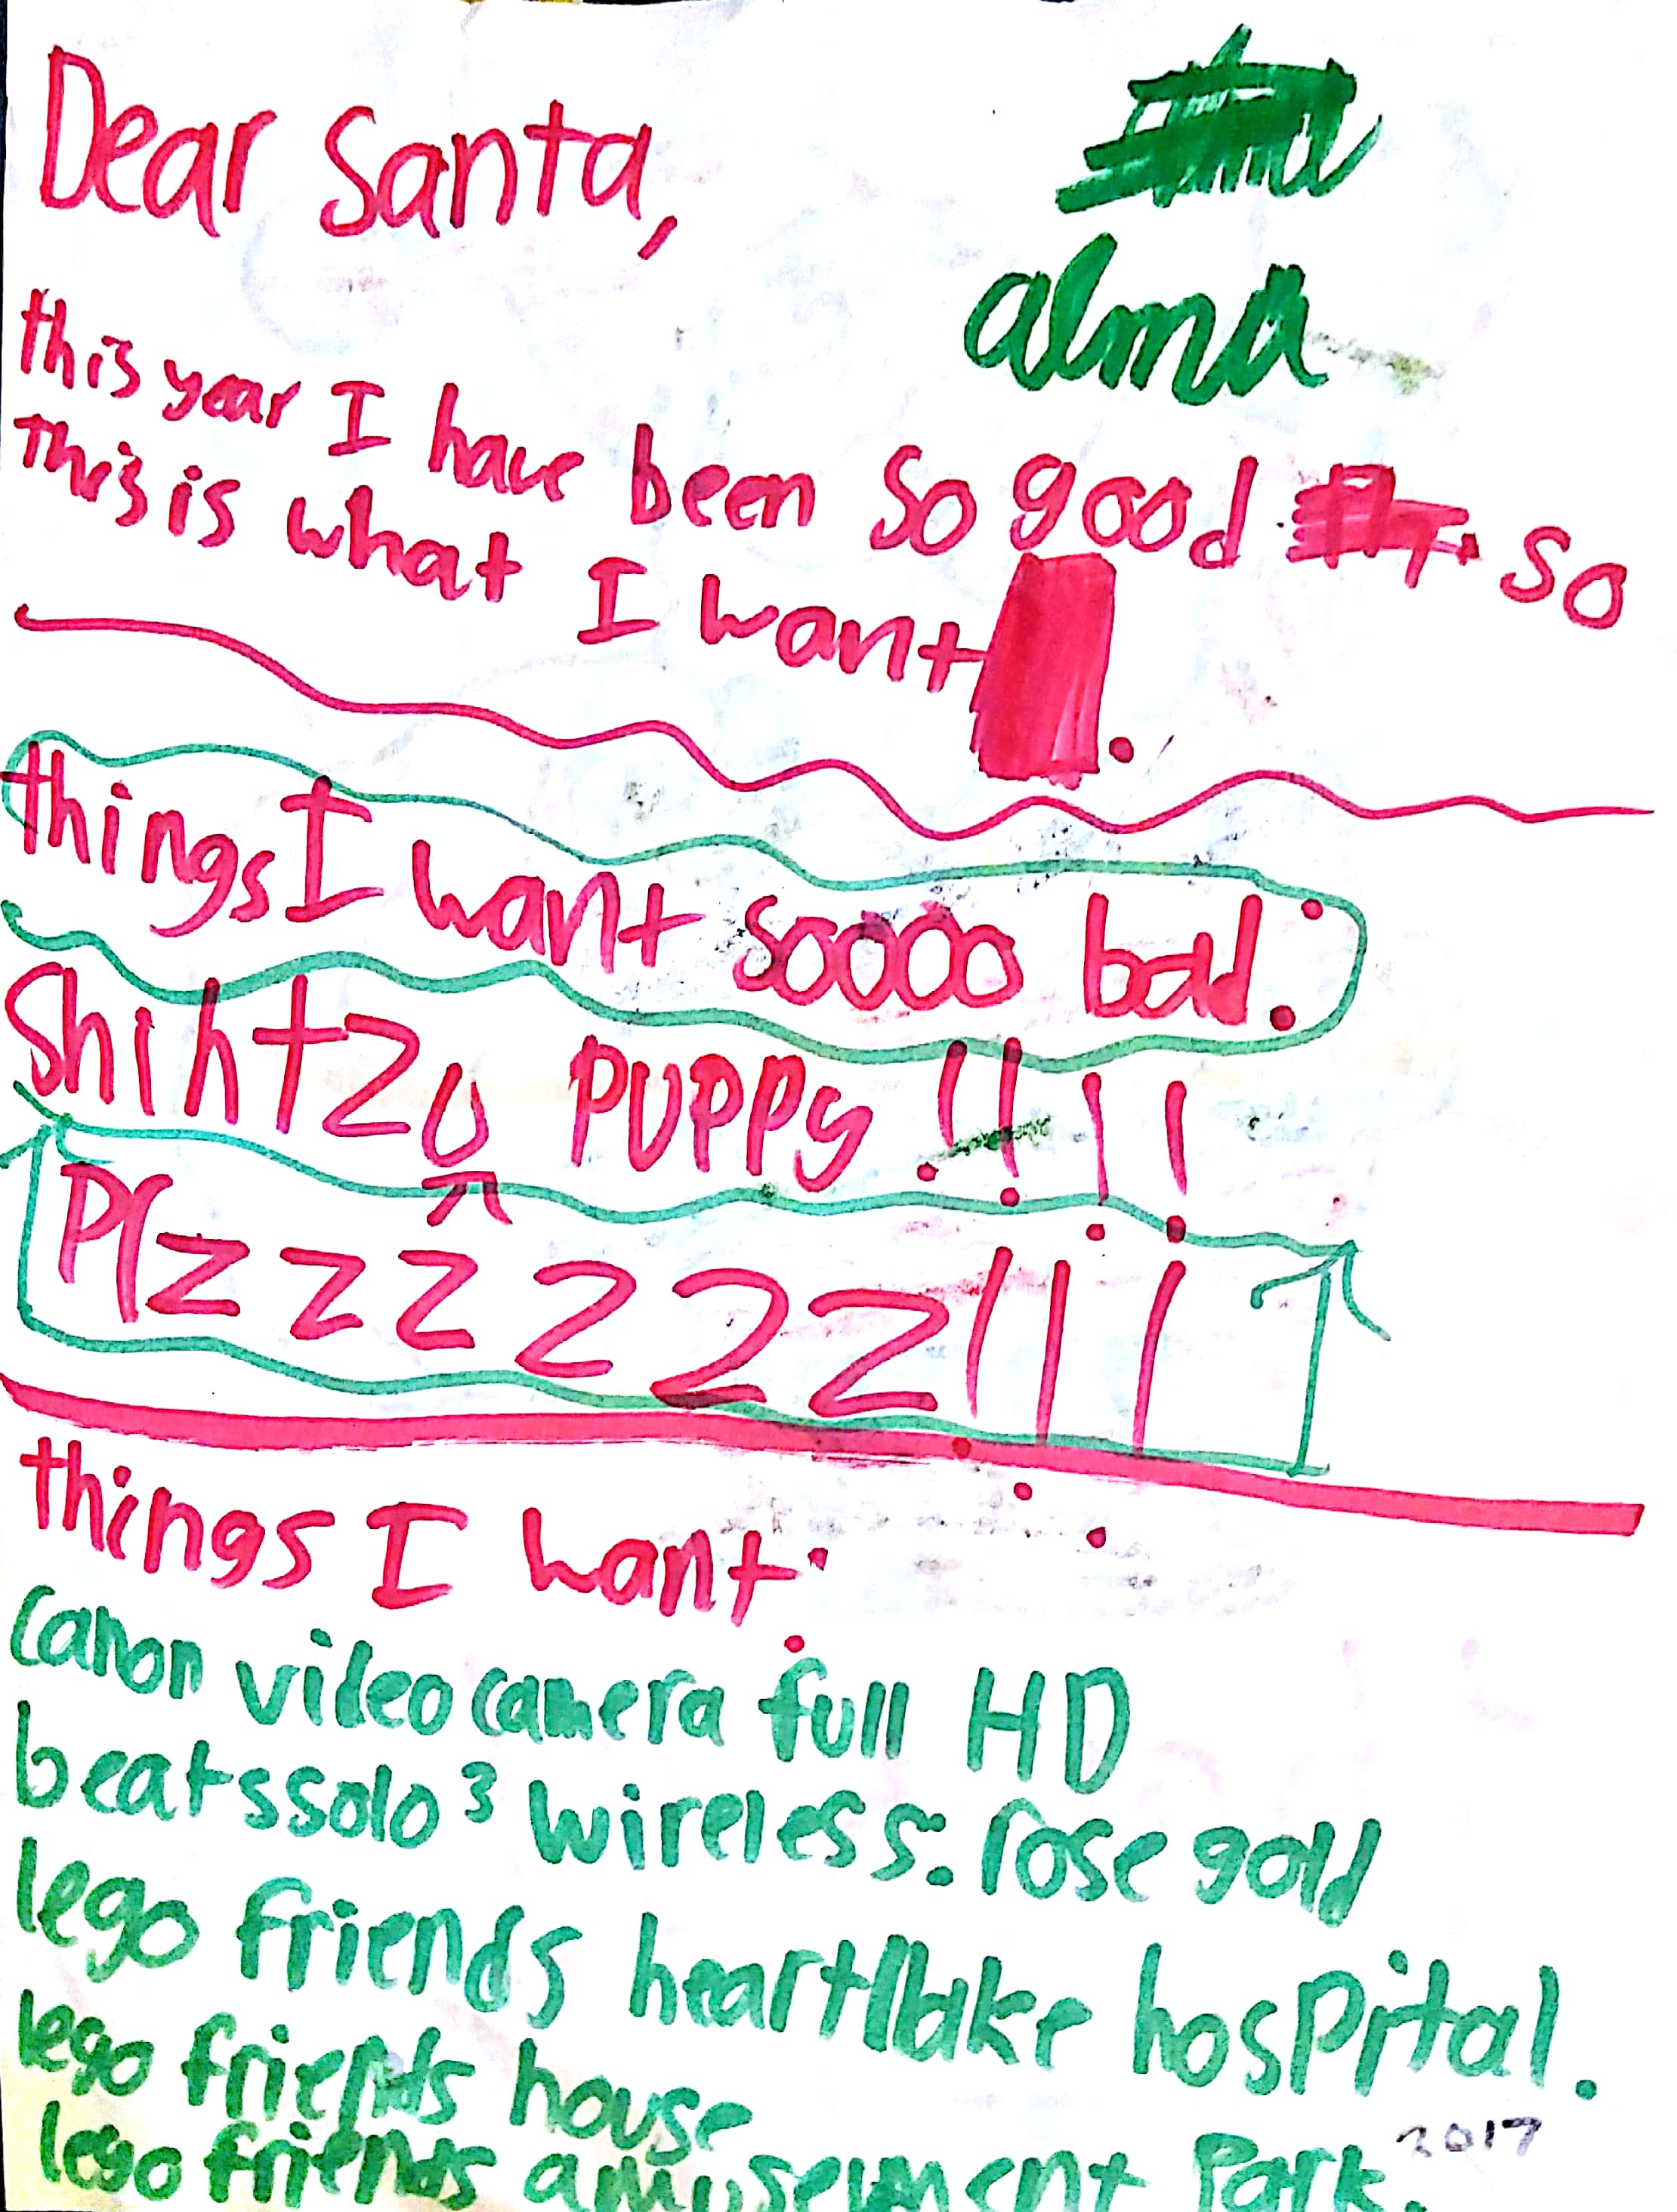 Dear Santa,
alma
this year I have been so good so
this is what I want.
things I want soooo bad:
Shih tzu puppy!!!!
Plzzzzzz!!!
things I want:
canon video camera full HD
beats solo 3 wireless: rose gold
lego friends heartlake hospital.
lego friends house
lego friends amusement Park.
2017